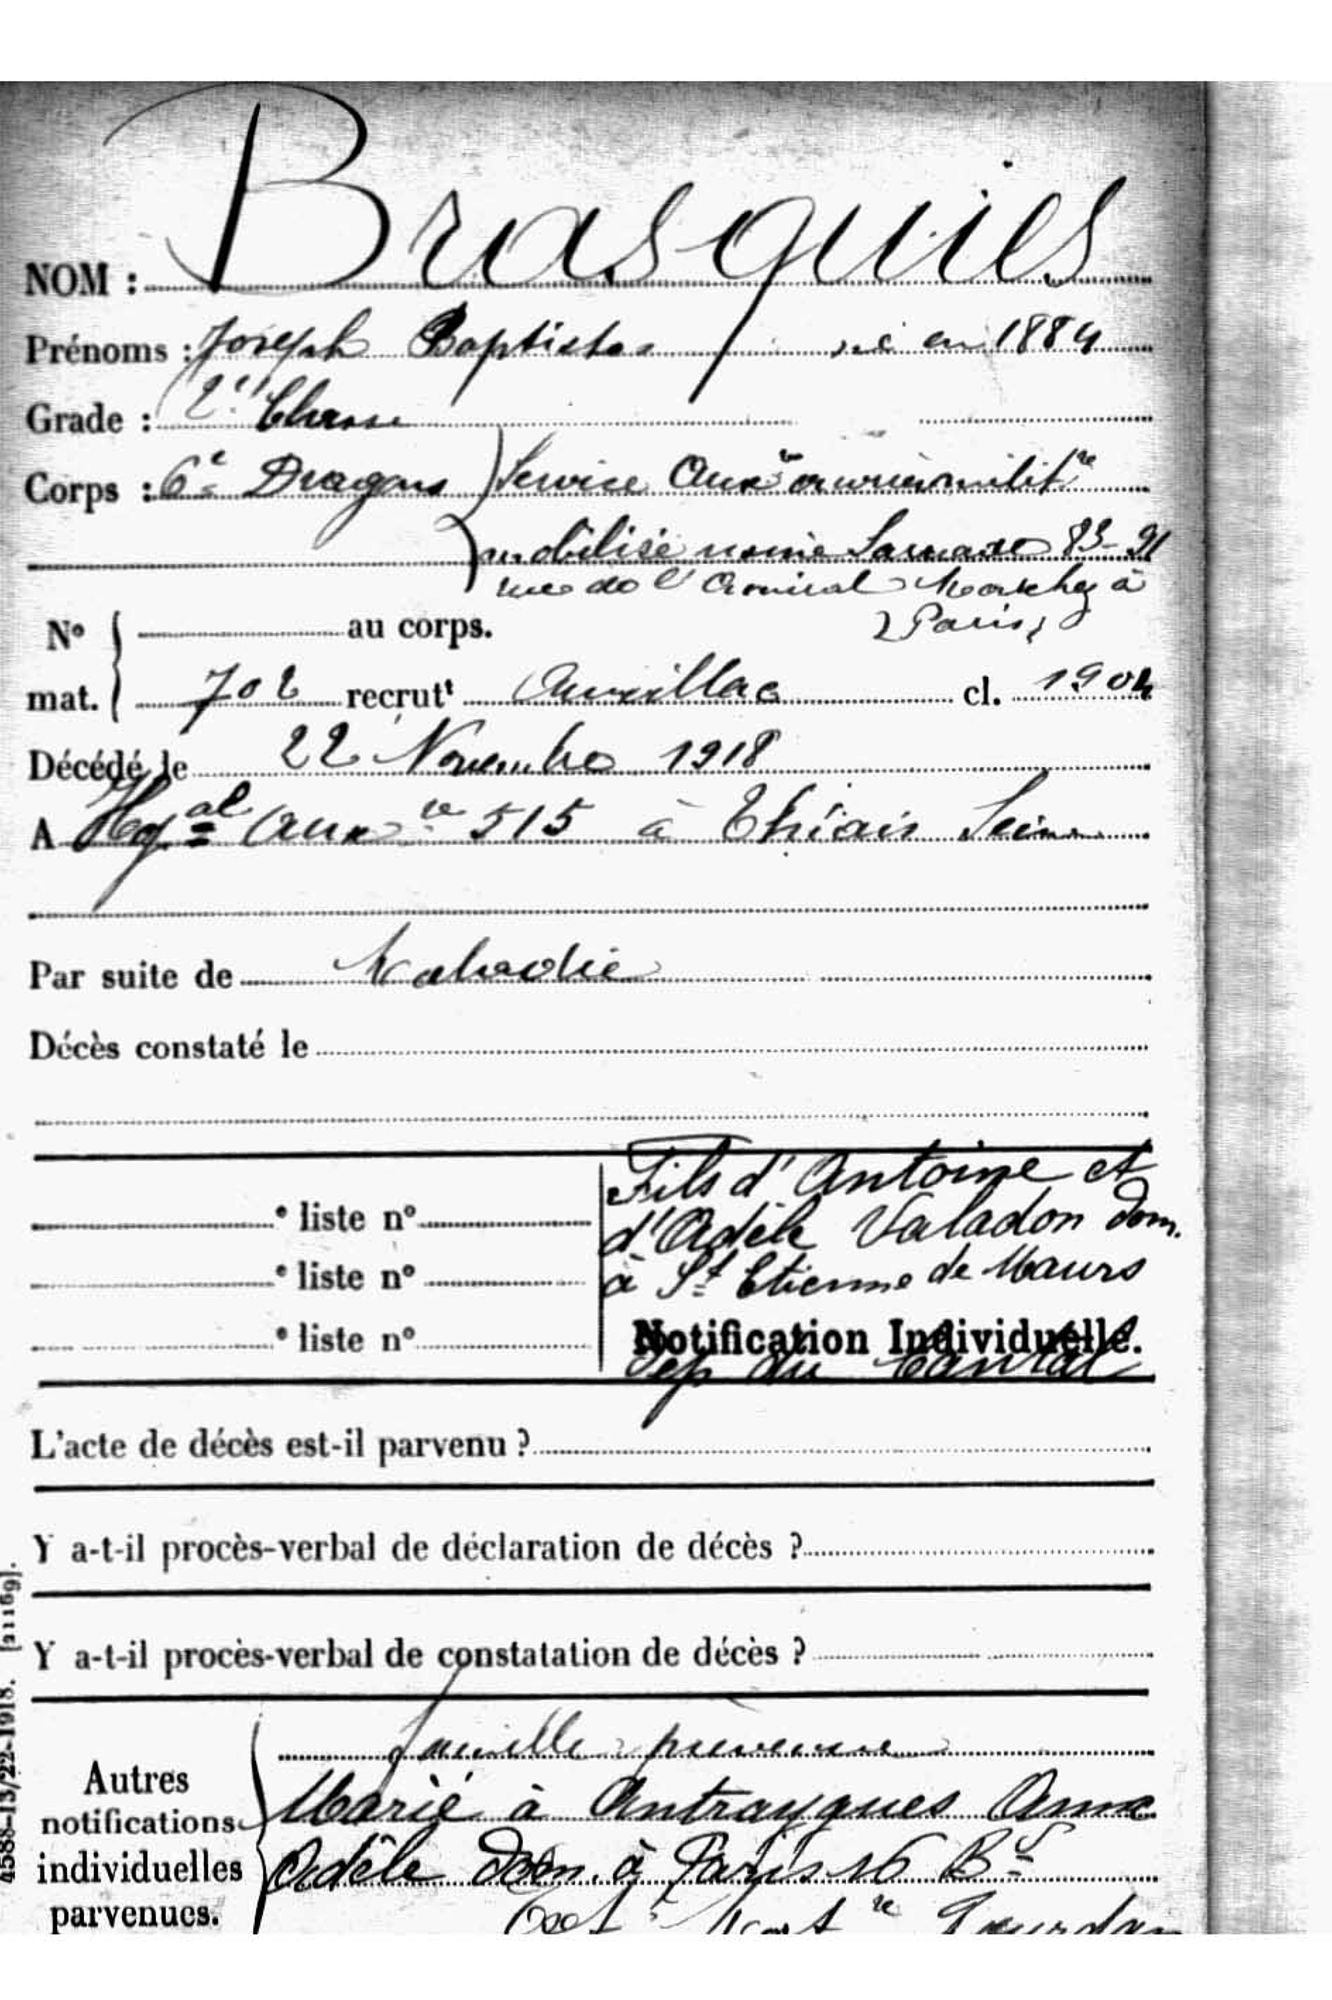 NOM : Brasquies
Prénoms : Joseph Baptiste né en 1884
Grade : 2e Classe
Corps : 6e Dragons Service Auxre ouvrier militre
mobilisé usine 83-91
rue de l'Amiral à
Paris
No au corps.
mat. 702 recrutt Aurillac cl. 1904
Décédé le 22 Novembre 1918
A Hopal Auxre 515 à Thiais Seine
Par suite de Maladie
Décès constaté le
Fils d'Antoine et
e liste no d'Adèle Valadon dom.
e liste no à St Etienne de Maurs
e liste no Notification Individuelle.
Dep du Cantal
L'acte de décès est-il parvenu ?
Y a-t-il procès-verbal de déclaration de décès ?
Y a-t-il procès-verbal de constatation de décès ?
4588-13/22-1918. [21169].
famille prévenue
Autres
notifications Marié à Antraygues Anne
individuelles Adèle dom. à Paris 16 Bd
parvenues.